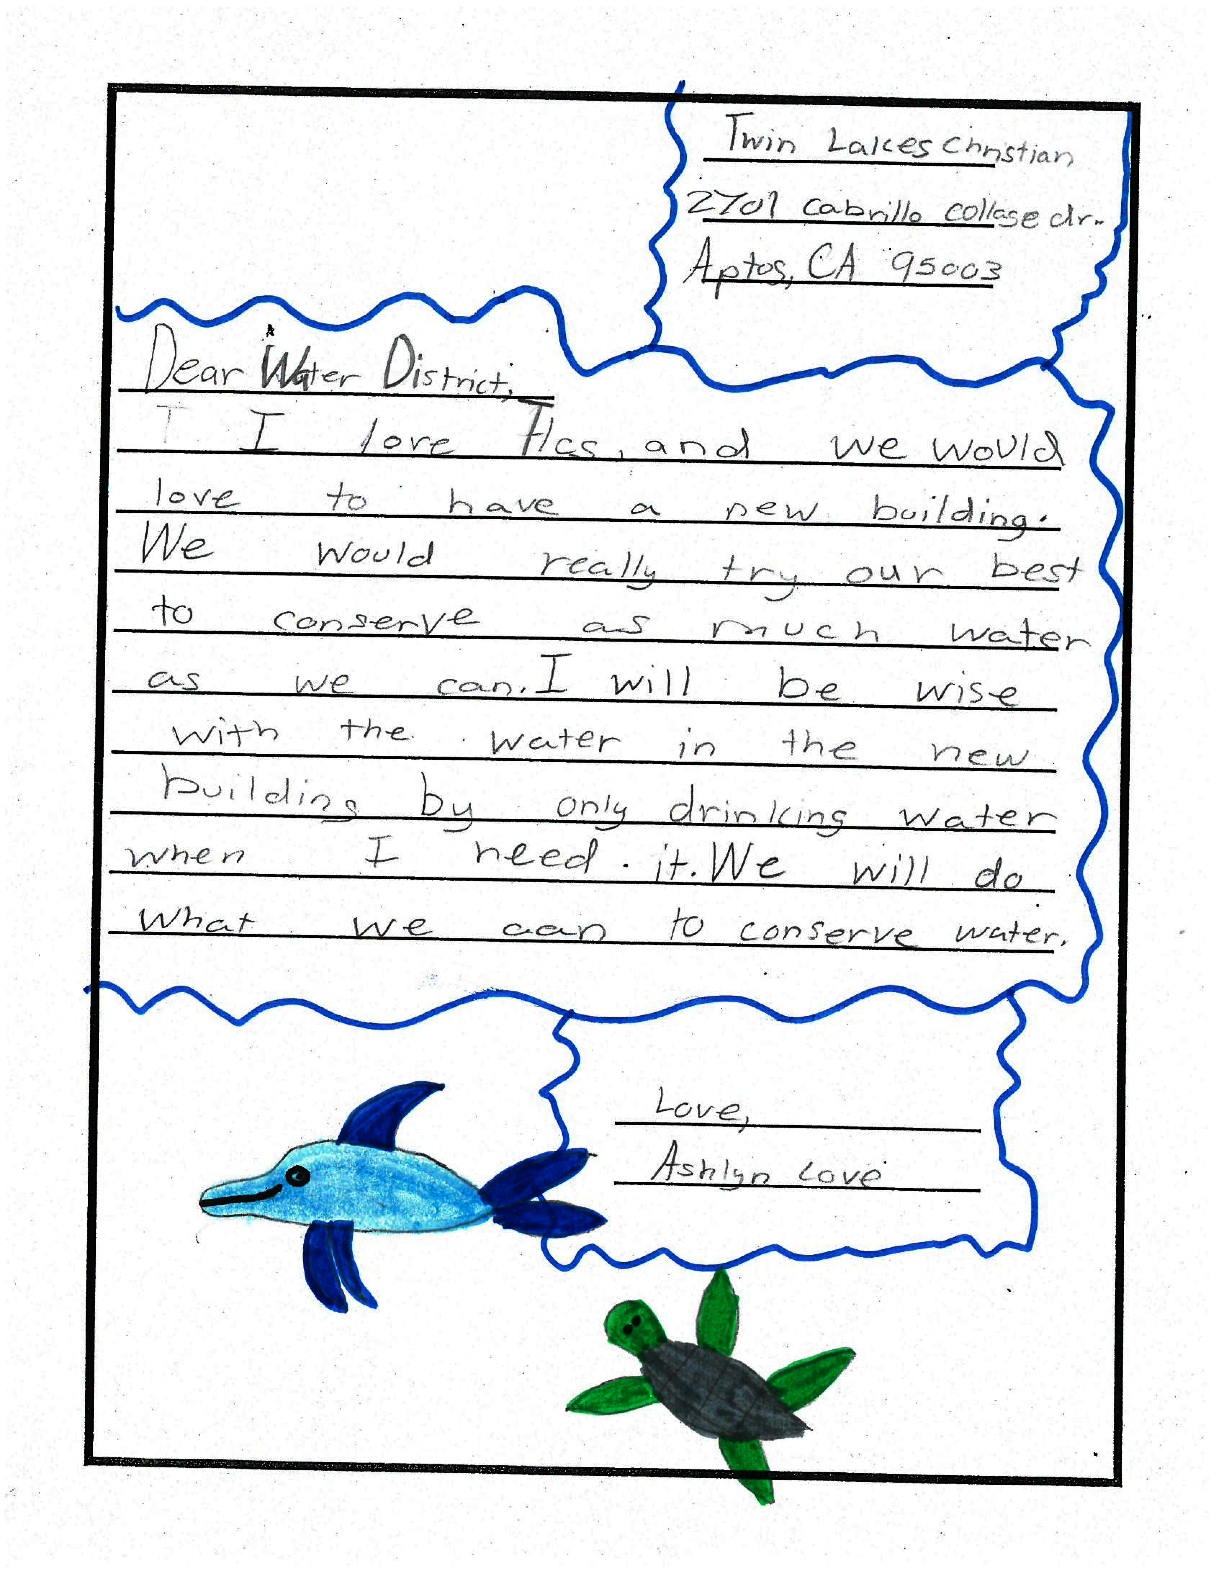 Twin Lakes Christian
2701 Cabrillo collage dr.
Aptos, CA 95003
Dear Water District,
I love Tlcs, and we would
love to have a new building.
We would really try our best
to conserve as much water
as we can. I will be wise
with the water in the new
building by only drinking water
when I need it. We will do
what we aan to conserve water.
Love,
Ashlyn Love